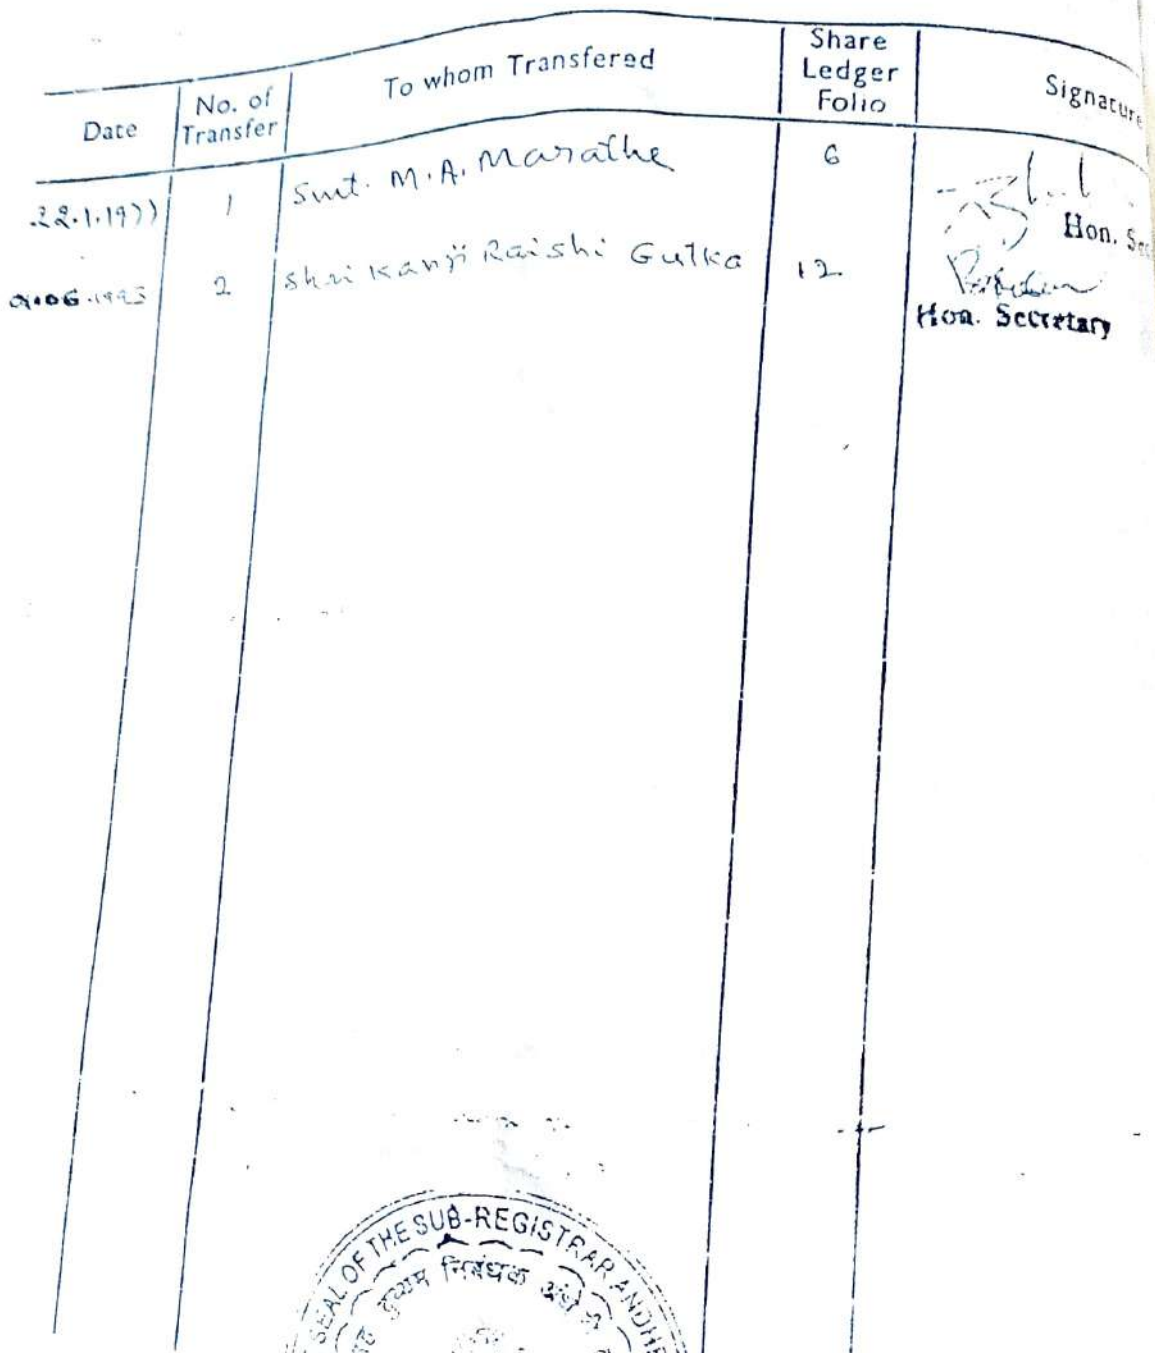 Date No. of Transfer To whom Transfered Share Ledger Folio Signature
22.1.1977 1 Smt. M.A. Marathe 6
Hon. Sec
.06.1993 2 Shri Kanji Raishi Gutka 12
Hon. Secretary
SEAL OF THE SUB-REGISTRAR ANDHE
दुय्यम निबंधक अंधेरी